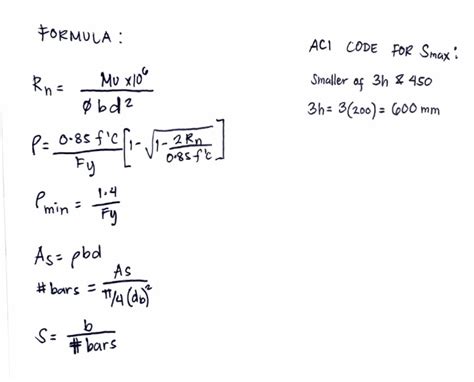 FORMULA:
Rn = Mu x10^6 / ∅bd^2
ρ = 0.85 f'c / Fy [1 - √(1 - 2Rn / 0.85 f'c)]
ρmin = 1.4 / Fy
As = ρbd
# bars = As / π/4 (db)^2
S = b / # bars
ACI CODE FOR Smax:
Smaller of 3h & 450
3h = 3(200) = 600 mm